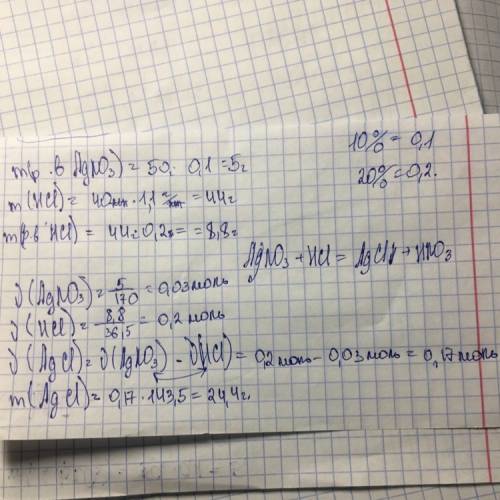 10% = 0,1
20% = 0,2.
mр.в (AgNO₃) = 50 · 0,1 = 5г
m(HCl) = 40мл · 1,1 г/мл = 44г
mр.в (HCl) = 44 · 0,2 = = 8,8г
AgNO₃ + HCl = AgCl↓ + HNO₃
ν(AgNO₃) = 5/170 = 0,03 моль
ν(HCl) = 8,8/36,5 = 0,2 моль
ν(AgCl) = ν(AgNO₃) - ν(HCl) = 0,2 моль - 0,03 моль = 0,17 моль
m(AgCl) = 0,17 · 143,5 = 24,4г.